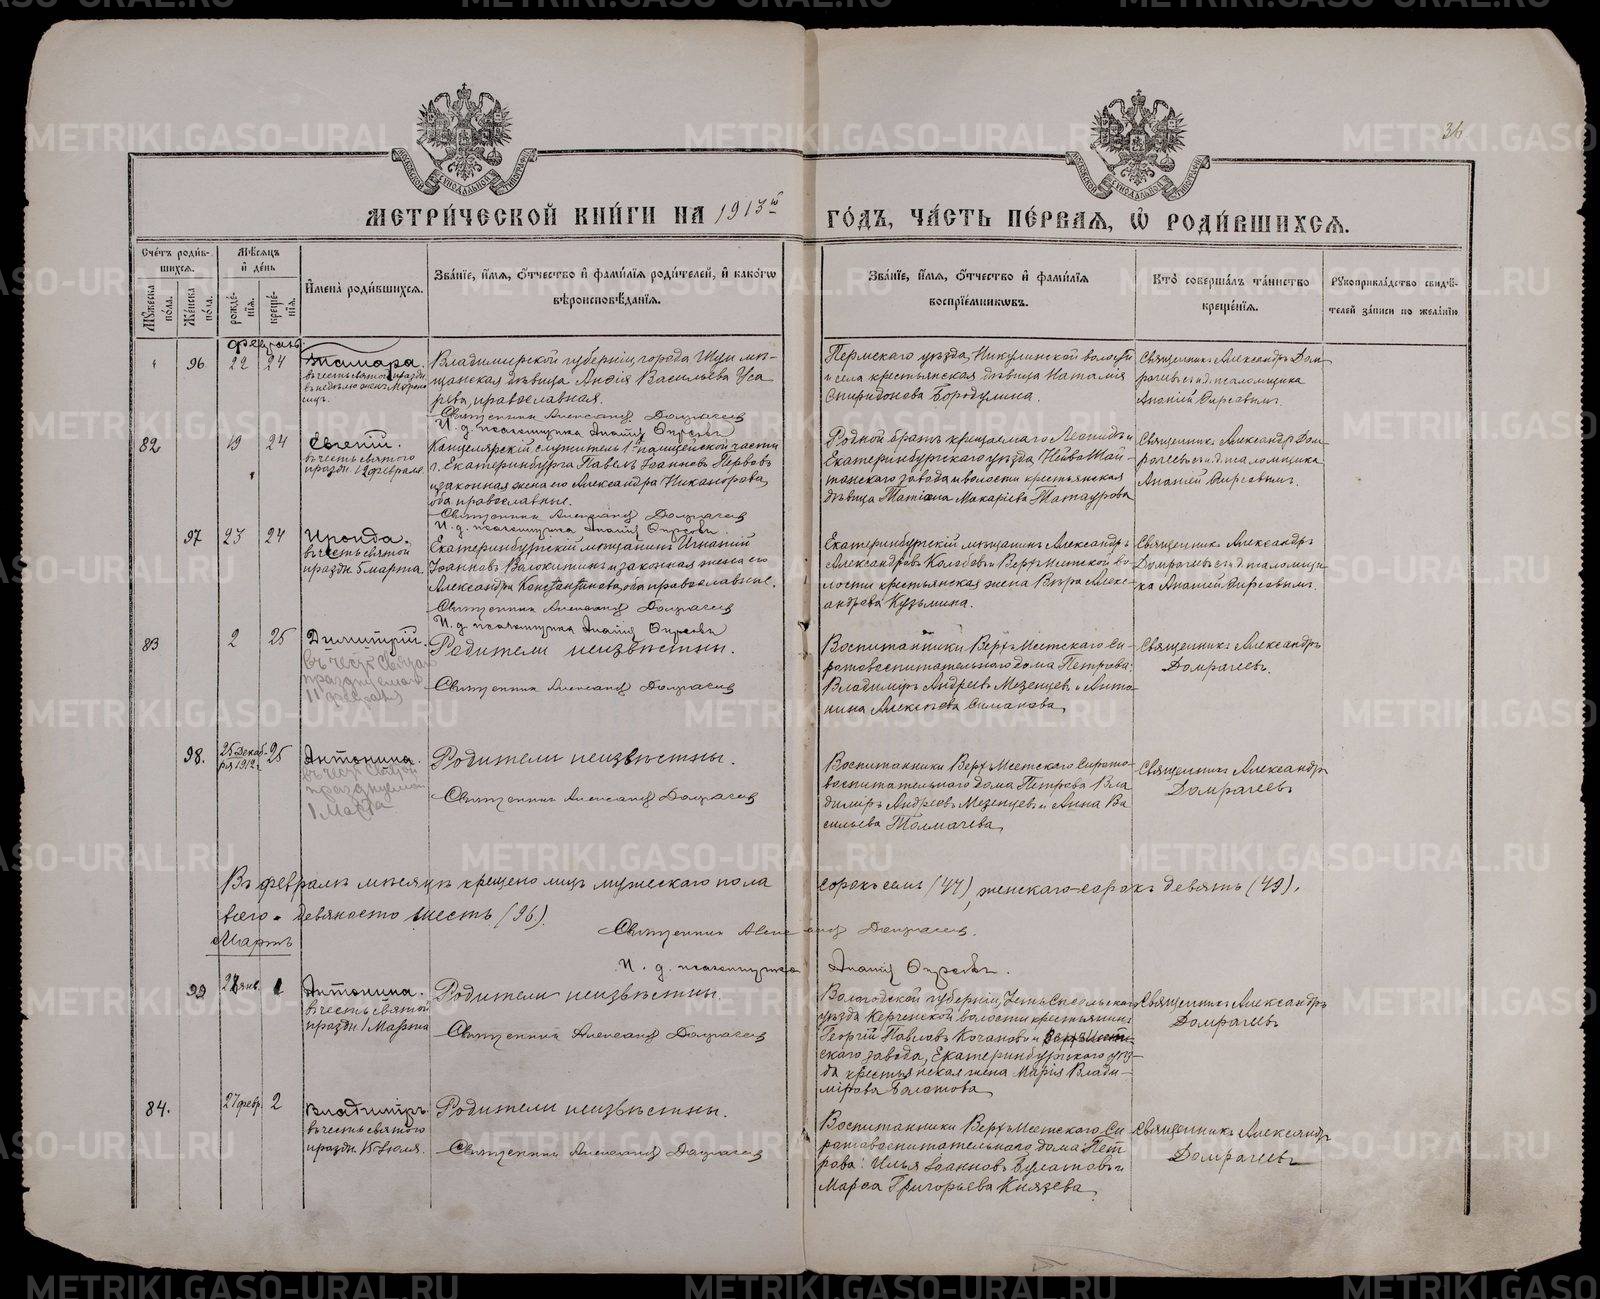 36
МЕТРИЧЕСКОЙ КНИГИ НА 1913й ГОДЪ, ЧАСТЬ ПЕРВАЯ, Ѡ РОДИВШИХСЯ.
Счетъ родив-
шихся.
Мужеска
пола.
Женска
пола.
Мѣсяцъ
и день
рожде-
нія.
креще-
нія.
Имена родившихся.
Званіе, имя, отчество и фамилія родителей, и какогѡ
вѣроисповѣданія.
Званіе, имя, отчество и фамилія
воспріемниковъ.
Кто совершалъ таинство
крещенія.
Рукоприкладство свидѣ-
телей записи по желанію
Февраль
96 22 24
Тамара.
Владимирской губерніи города Шуи мѣ-
щанская дѣвица
Васильева
рова, православная.
Священникъ Александръ Домрачевъ
И. д. псаломщика Ананій Фирсовъ
Пермскаго уѣзда, Никулинской волости
и села крестьянская дѣвица Наталія
Спиридонова Бородулина.
Священникъ Александръ Дом-
рачевъ с и.д. псаломщика
Ананіей Фирсовымъ.
82 19 24
Евгеній.
въ честь святого
праздн. 12 февраля
Канцелярскій служитель 1й полицейской части
г. Екатеринбурга Павелъ Іоанновъ Первовъ
и законная жена его Александра Никанорова,
оба православные.
Священникъ Александръ Домрачевъ
И. д. псаломщика Ананій Фирсовъ
Родной братъ крещаемаго Леонидъ и
Екатеринбургскаго уѣзда, Нейво Шай-
танскаго завода и волости крестьянская
дѣвица Татіана Макаріева Татаурова
Священникъ Александръ Дом-
рачевъ с и.д. псаломщика
Ананіей Фирсовымъ.
97 23 24
Ираида.
въ честь святой
праздн. 5 марта.
Екатеринбургскій мѣщанинъ Игнатій
Іоанновъ Волокитинъ и законная жена его
Александра Константинова, оба православные.
Священникъ Александръ Домрачевъ
И. д. псаломщика Ананій Фирсовъ
Екатеринбургскій мѣщанинъ Александръ
Александровъ Колобовъ и Верхъ-Исетской во-
лости крестьянская жена Вѣра Алекс-
андрова Кузьмина.
Священникъ Александръ
Домрачевъ с и.д. псаломщи-
ка Ананіей Фирсовымъ.
83 2 25
Димитрій.
въ честь святаго
празднуемаго
11 февраля
Родители неизвѣстны.
Священникъ Александръ Домрачевъ
Воспитанники Верхъ-Исетскаго Си-
ротовоспитательнаго дома Петрова:
Владиміръ Андреевъ Мезенцевъ и Анто-
нина Алексѣева Симанова,
Священникъ Александръ
Домрачевъ.
98. 25 Декаб-
ря 1912 г. 25
Антонина.
въ честь святой
празднуемой
1 Марта
Родители неизвѣстны.
Священникъ Александръ Домрачевъ
Воспитанники Верхъ-Исетскаго Сирото-
воспитательнаго дома Петрова Вла-
диміръ Андреевъ Мезенцевъ и Анна Ва-
сильева Толмачева,
Священникъ Александръ
Домрачевъ
Въ февралѣ мѣсяцѣ крещено лицъ мужескаго пола сорокъ семь (47), женскаго-сорокъ девять (49),
всего - девяносто шесть (96).
Священникъ Александръ Домрачевъ.
И. д. псаломщика Ананій Фирсовъ.
Мартъ
99 янв. 1
Антонина.
въ честь святой
праздн. 1 Марта
Родители неизвѣстны.
Священникъ Александръ Домрачевъ
Вологодской губерніи, Усть-Сысольскаго
уѣзда Керчемской волости крестьянинъ
Георгій Павловъ Кочановъ и Верхъ-Исет-
скаго завода, Екатеринбургскаго уѣз-
да крестьянская жена Марія Влади-
мірова Болотова
Священникъ Александръ
Домрачевъ
84. 27 февр. 2
Владиміръ
въ честь святого
праздн. 15 Іюля.
Родители неизвѣстны.
Священникъ Александръ Домрачевъ
Воспитанники Верхъ-Исетскаго Си-
ротовоспитательнаго дома Пет-
рова: Илья Іоанновъ Булатовъ и
Марѳа Григорьева Князева,
Священникъ Александръ
Домрачевъ
METRIKI.GASO-URAL.RU